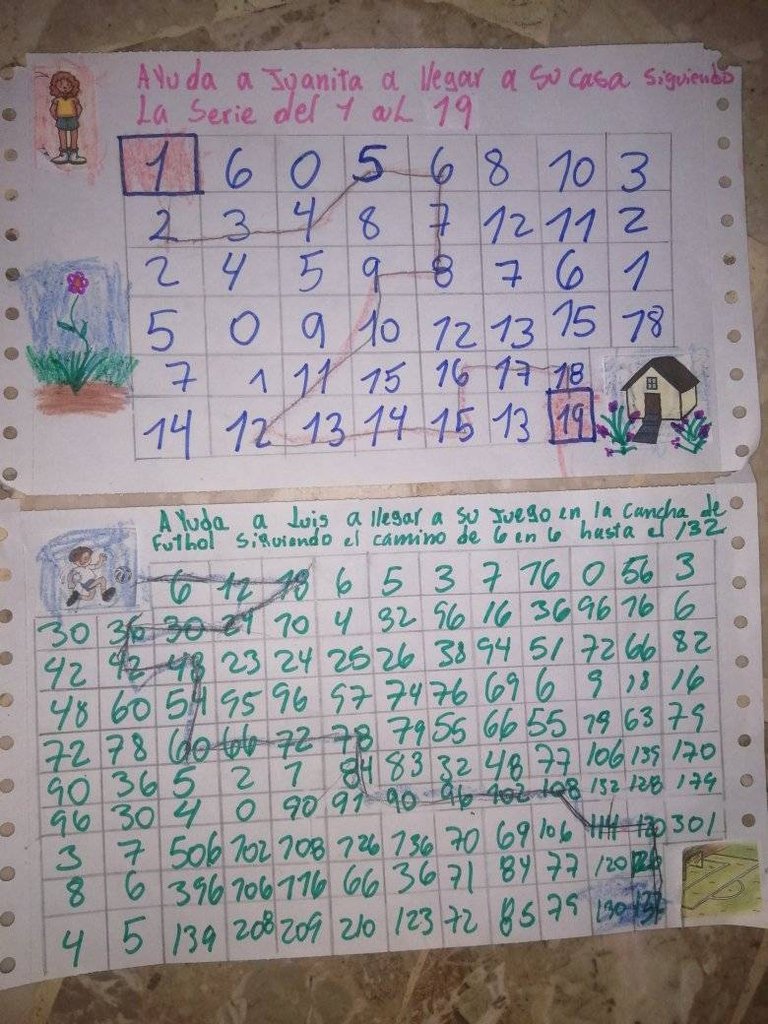 Ayuda a Juanita a llegar a su casa siguiendo
La Serie del 1 al 19
1 6 0 5 6 8 10 3
2 3 4 8 7 12 11 2
2 4 5 9 8 7 6 1
5 0 9 10 12 13 15 18
7 1 11 15 16 17 18
14 12 13 14 15 13 19
Ayuda a Luis a llegar a su Juego en la cancha de
Futbol siguiendo el camino de 6 en 6 hasta el 132
6 12 18 6 5 3 7 16 0 56 3
30 36 30 24 70 4 32 96 16 36 96 76 6
42 42 48 23 24 25 26 38 94 51 72 66 82
48 60 54 95 96 97 74 76 69 6 9 18 16
72 78 60 66 72 78 79 55 66 55 79 63 79
90 36 5 2 1 84 83 32 48 77 106 139 170
96 30 4 0 90 91 90 96 102 108 132 128 179
3 7 506 102 108 126 136 70 69 106 114 120 301
8 6 396 106 116 66 36 71 84 77 120 126
4 5 139 208 209 210 123 72 85 79 130 132